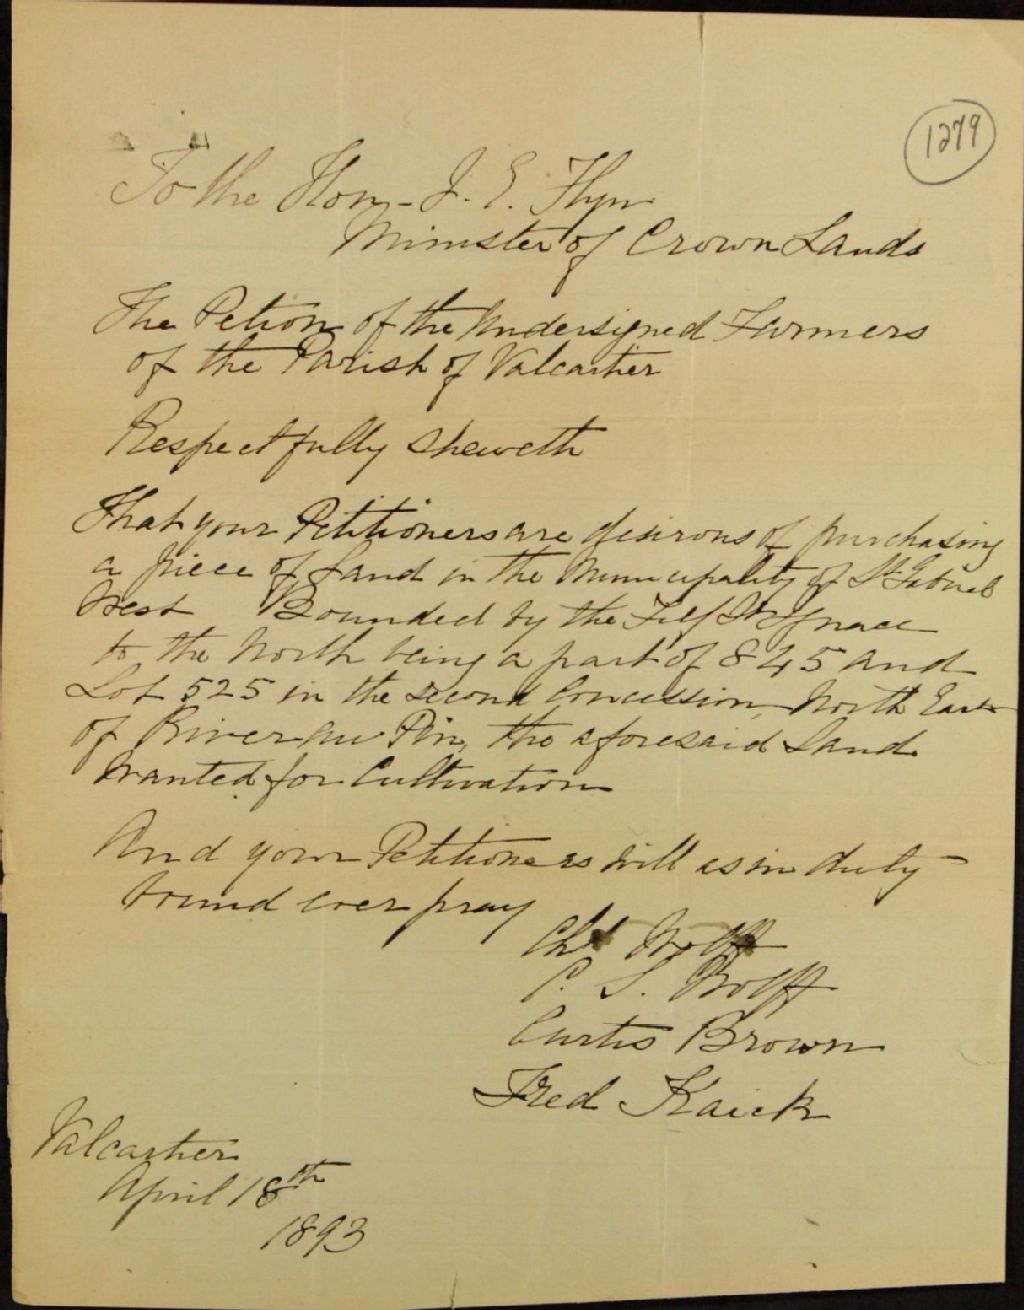 1279
To the Hon- J. E. Flyn
Minister of Crown Lands
The Petion of the Undersigned Farmers
of the Parish of Valcartier
Respectfully Sheweth
That your Petitioners are desirous of purchasing
a piece of Land in the Municipality of St Gabriel
West Bounded by the Fief St Ignace
to the North being a part of 845 and
Lot 525 in the second Concession North East
of River au Pin, the aforesaid Land
Wanted for Cultivation
And your Petitioners will as in duty
bound ever pray
Chs Wolff
P. S. Wolff
Curtis Brown
Fred Kaick
Valcartier
April 18th
1893